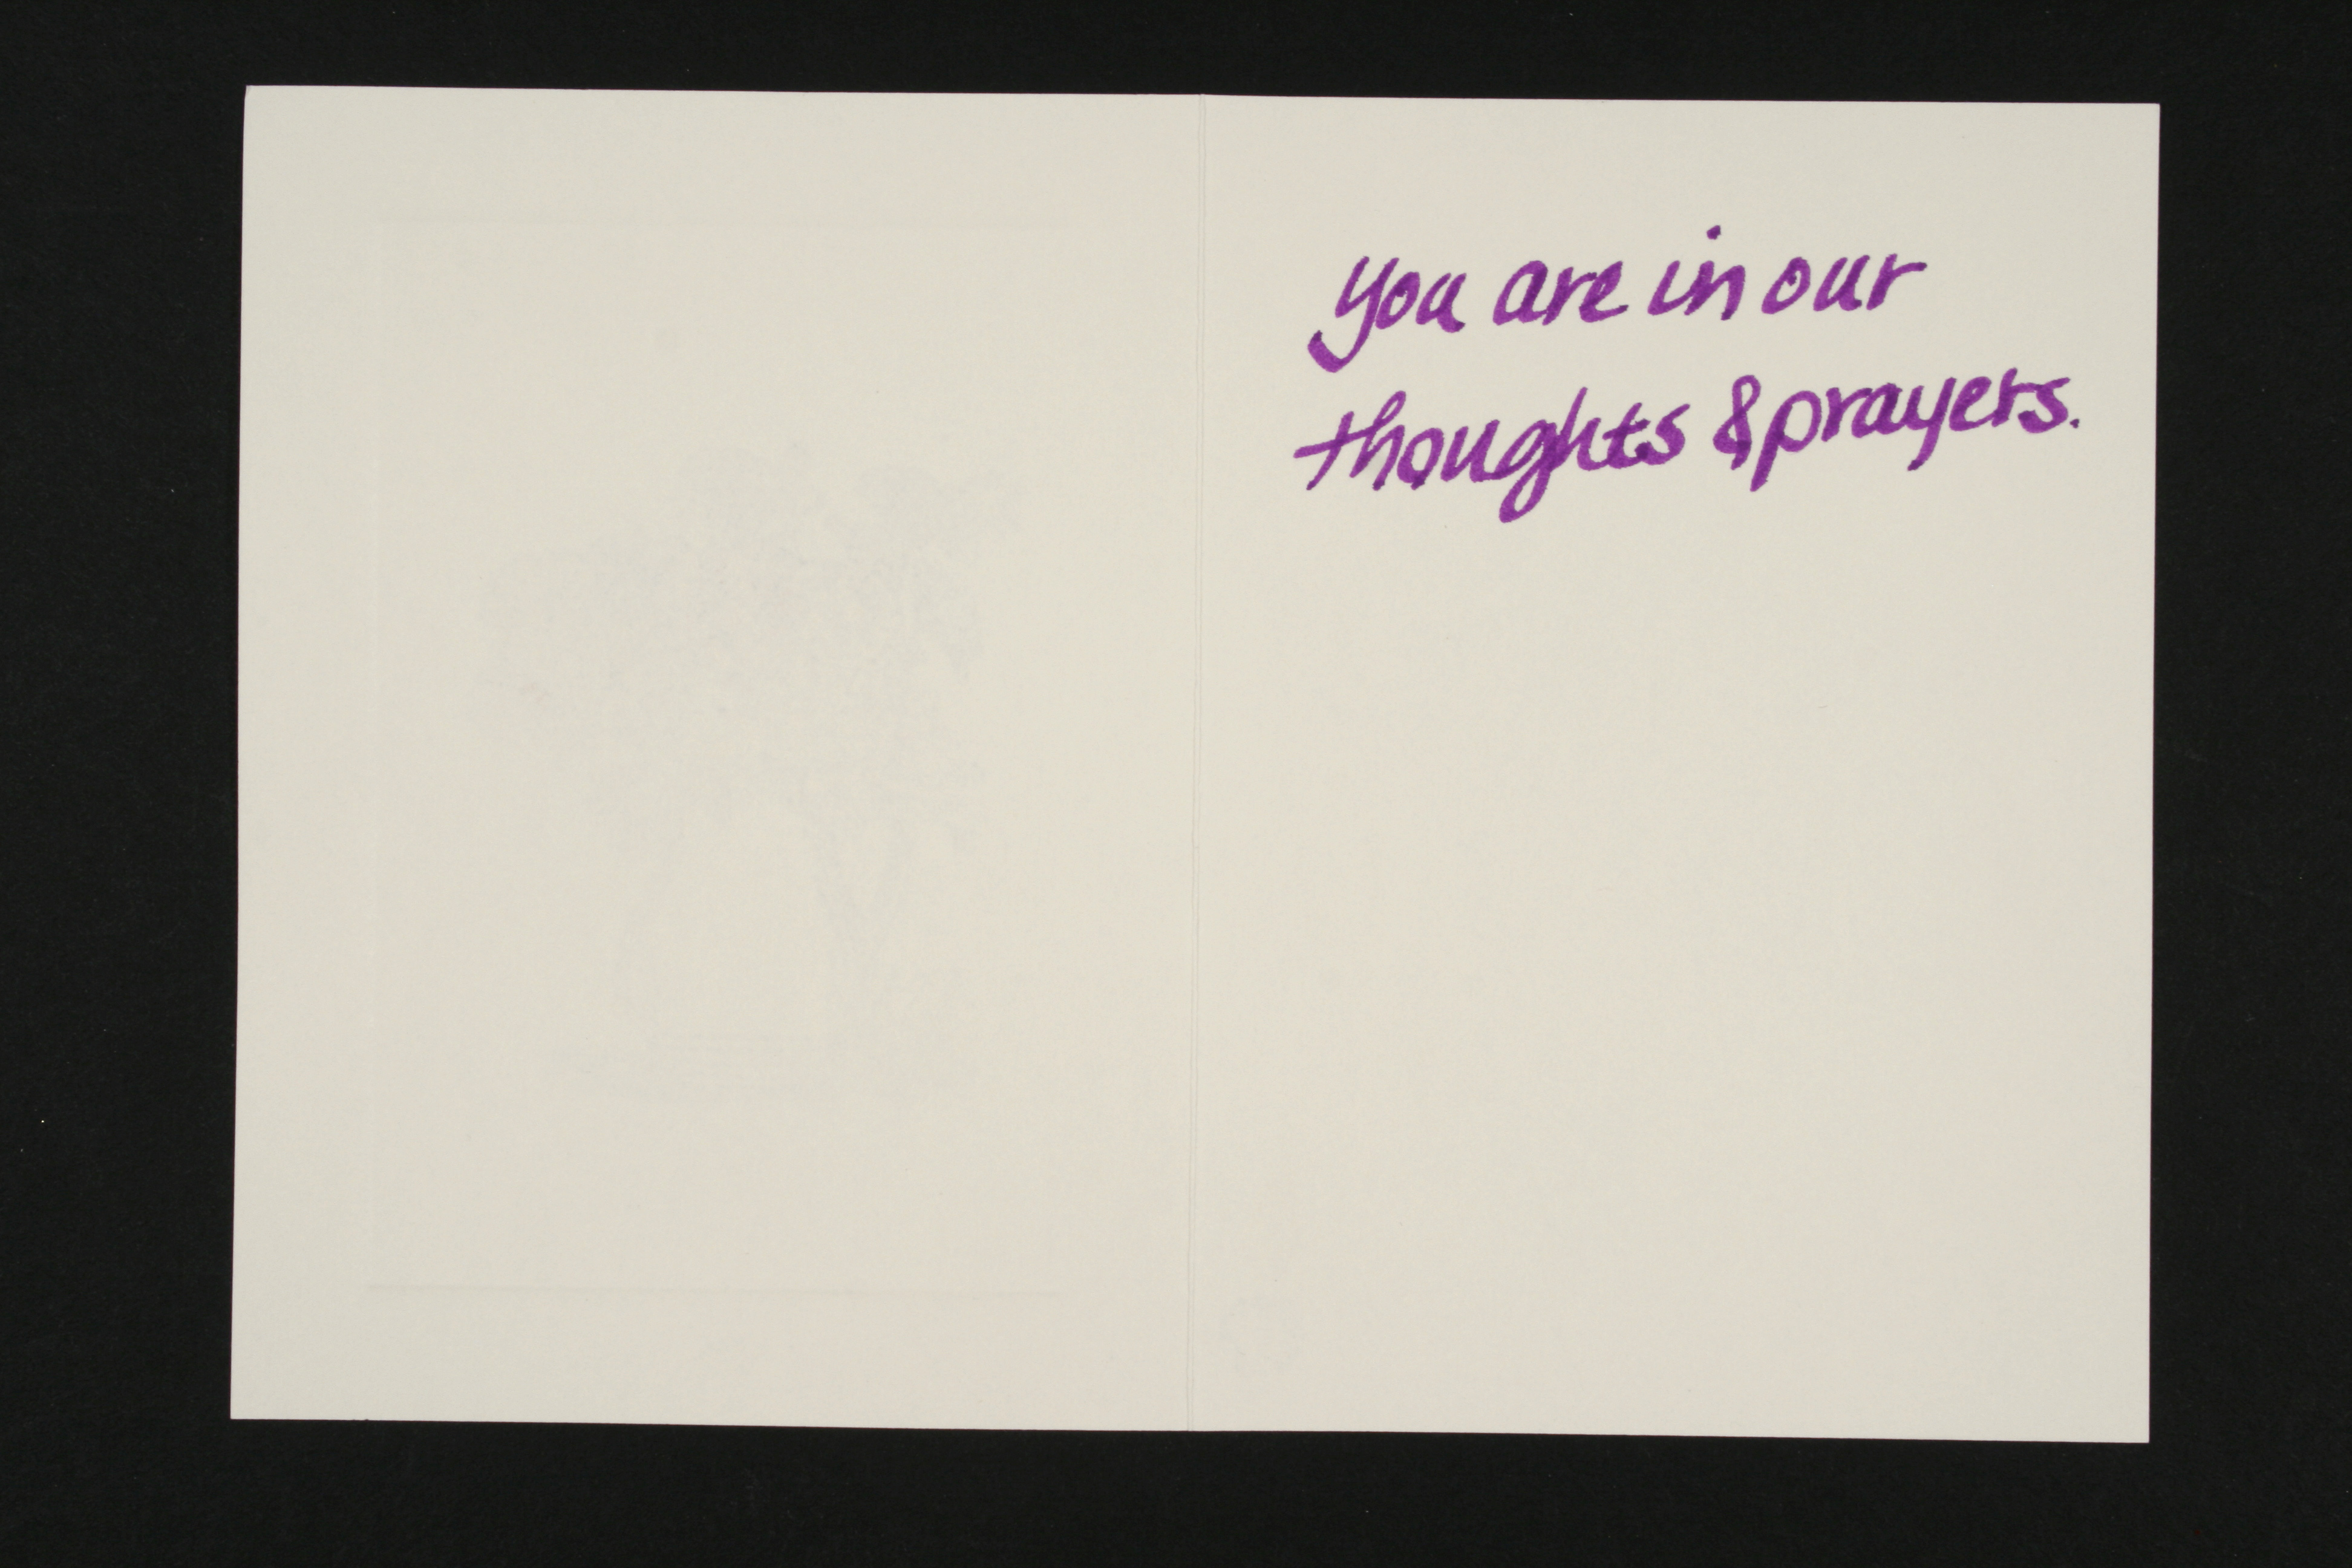 you are in our
thoughts & prayers.